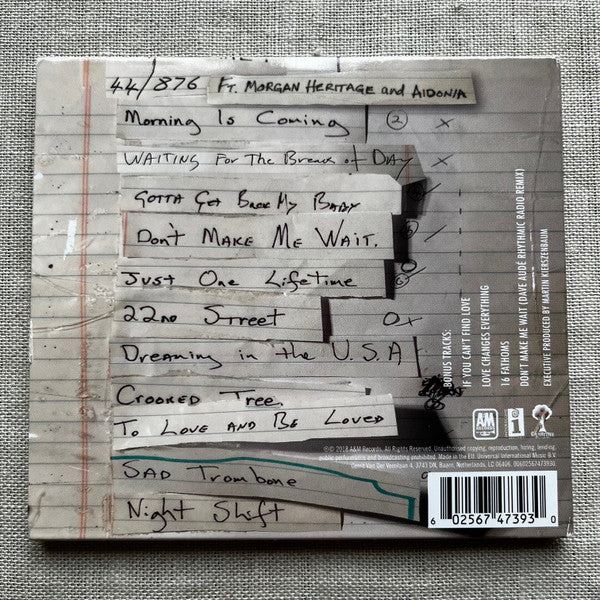 44/876 FT. MORGAN HERITAGE and AIDONIA
Morning Is Coming ② x
WAITING FOR THE Break of DAY x
GOTTA Get Back My BABY
DON'T MAKE ME WAIT.
Just One Lifetime
22ND Street O x
Dreaming in the U.S.A
Crooked Tree.
To Love AND Be Loved
SAD Trombone
Night Shift
BONUS TRACKS:
IF YOU CAN'T FIND LOVE
LOVE CHANGES EVERYTHING
16 FATHOMS
DON'T MAKE ME WAIT (DAVE AUDÉ RHYTHMIC RADIO REMIX)
EXECUTIVE PRODUCED BY MARTIN KIERSZENBAUM
A&M
RECORDS
i
℗© 2018 A&M Records. All Rights Reserved. Unauthorised copying, reproduction, hiring, lending,
public performance and broadcasting prohibited. Made in the EU. Universal International Music B.V.
Gerrit Van Der Veenlaan 4, 3743 DN, Baarn, Netherlands, LC 06406. 00602567473930.
6 02567 47393 0